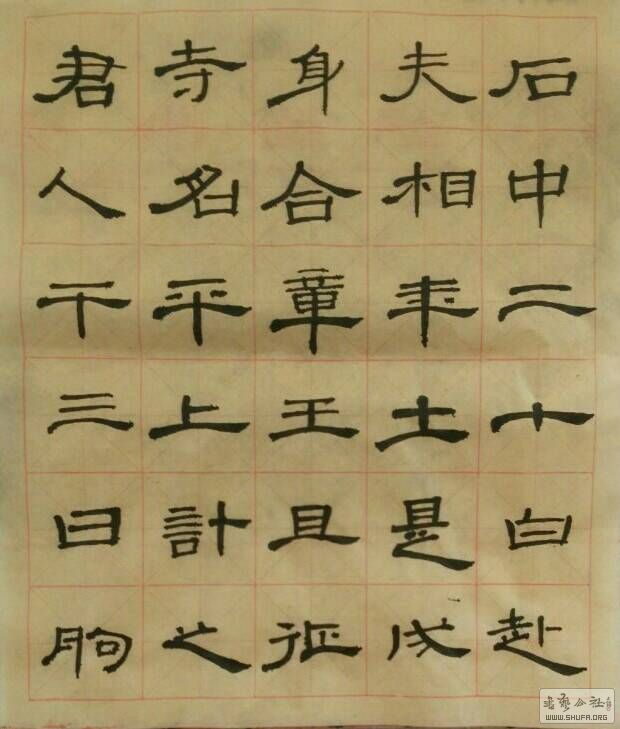 石中二十白赴
夫相年士是成
身合章王且征
寺名平上計之
君人干三曰朐
書藝公社
WWW.SHUFA.ORG